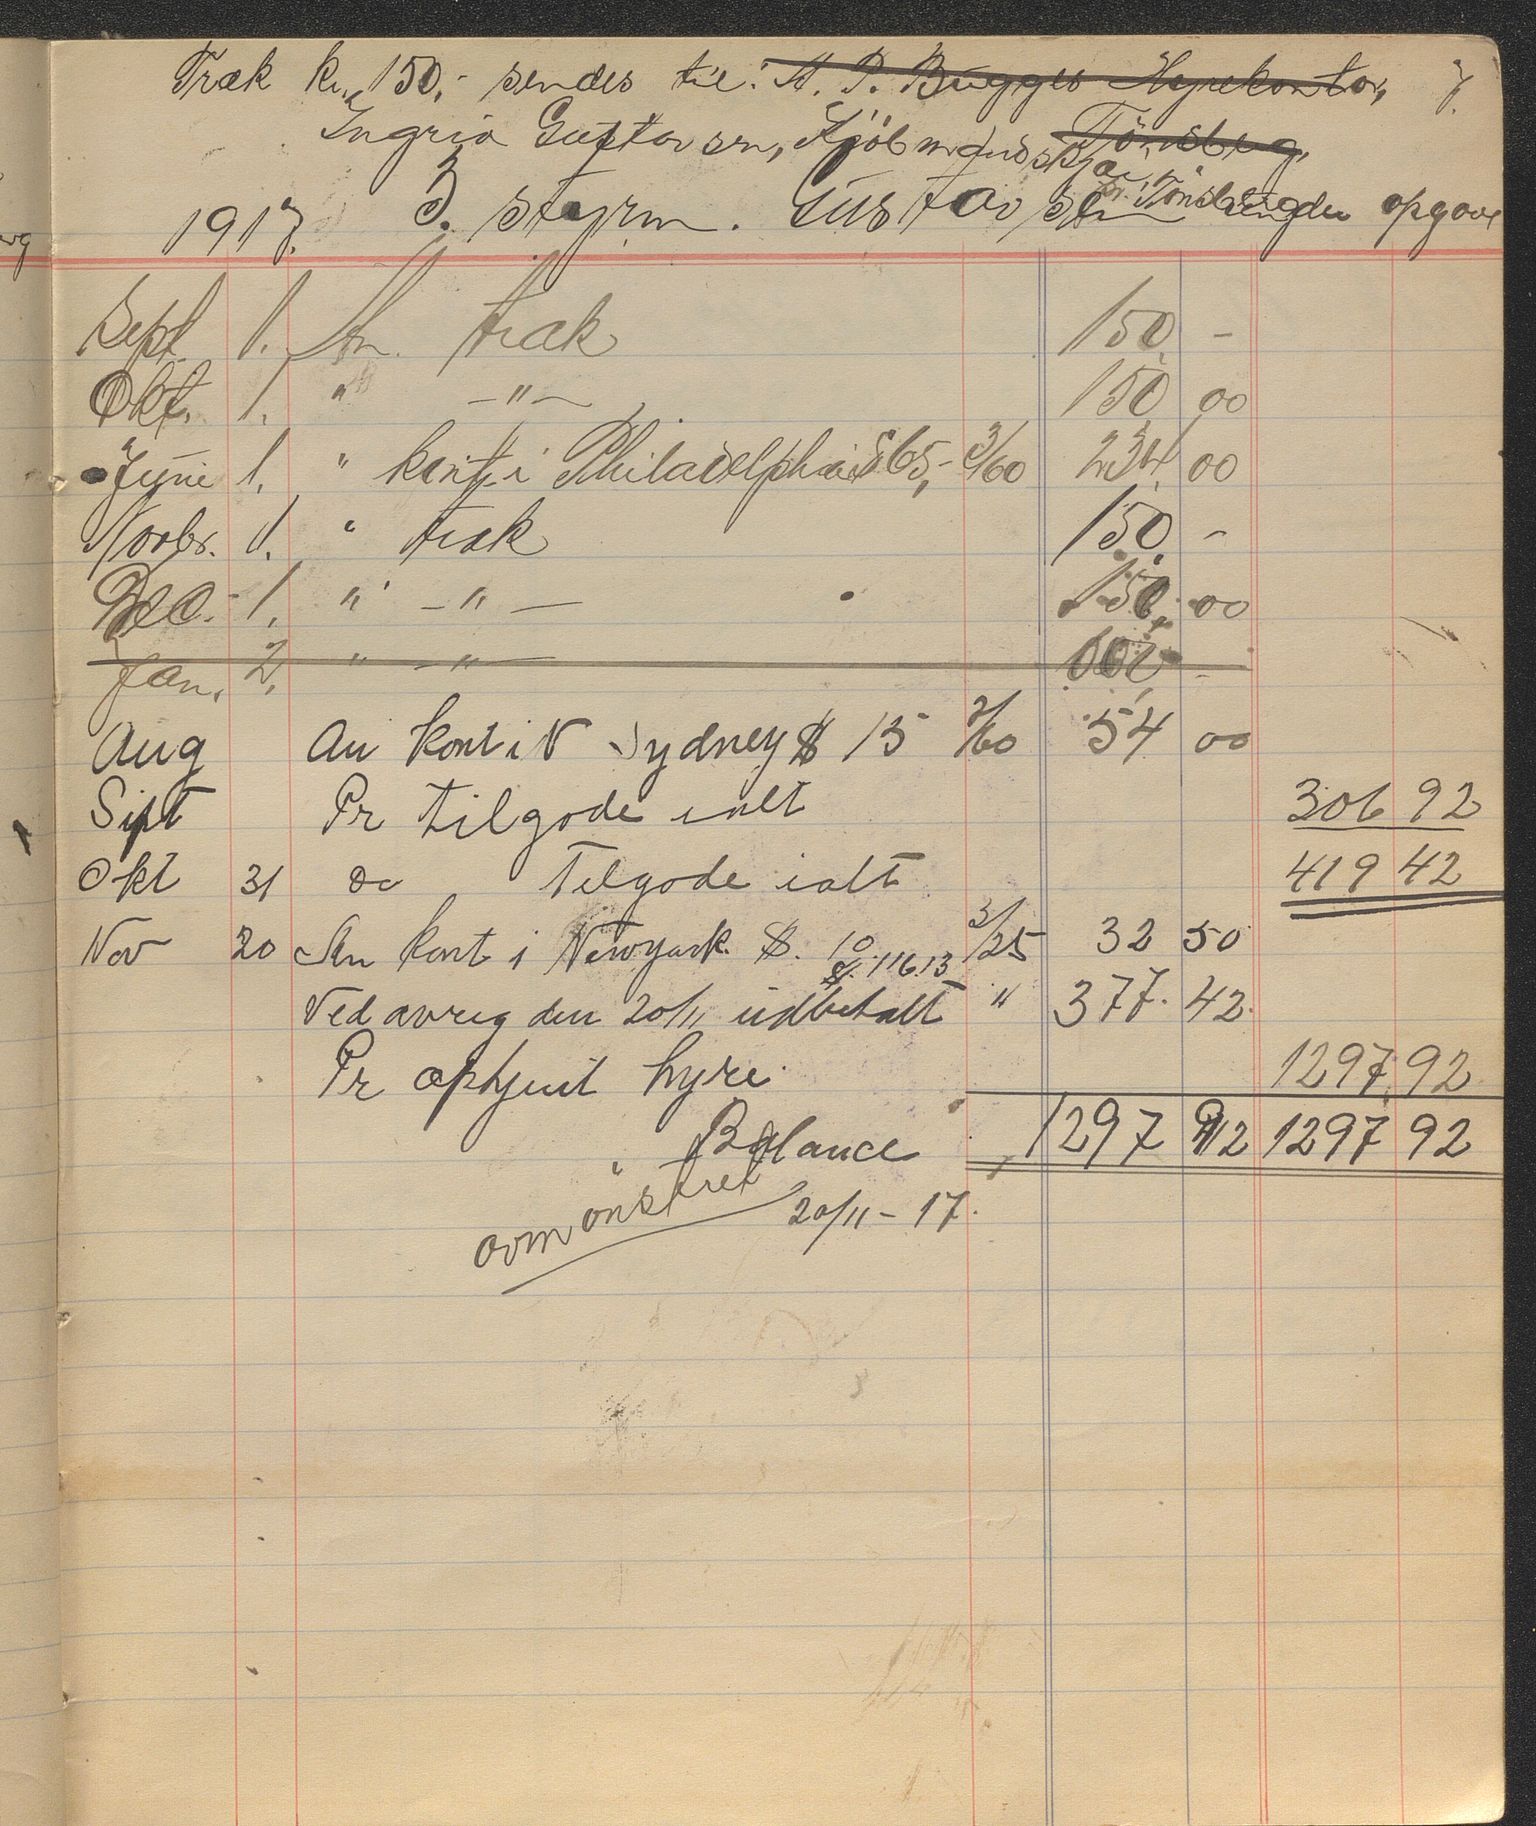 Træk kr. 150,- sendes til: A. P. Bugges Hyrekontor, 7.
Ingrid Gustavsen, Kjøbmandskjær Tönsberg,
pr. Tönsberg
1917. 3. styrm. Gustavsen opgave
Sept. 1. An. træk 150 -
Okt. 1. " -"- 150 00
Juni 1. " kont. i Philadelphia $65,- 3/60 234 00
Novbr. 1. " træk 150 -
Dec. 1. " -"- 150 00
Jan. 2. " -"-
Aug An kont i N Sydney $ 15 3/60 54 00
Sept Pr tilgode ialt 306 92
Okt 31 Do Tilgode ialt 419 42
Nov 20 An kont i Newyork $. 10 3/25 32 50
$. 116.13
Ved avreg den 20/11 udbetalt " 377. 42.
Pr optjent hyre 1297 92
Balance 1297 92 1297 92
avmønstret 20/11-17.